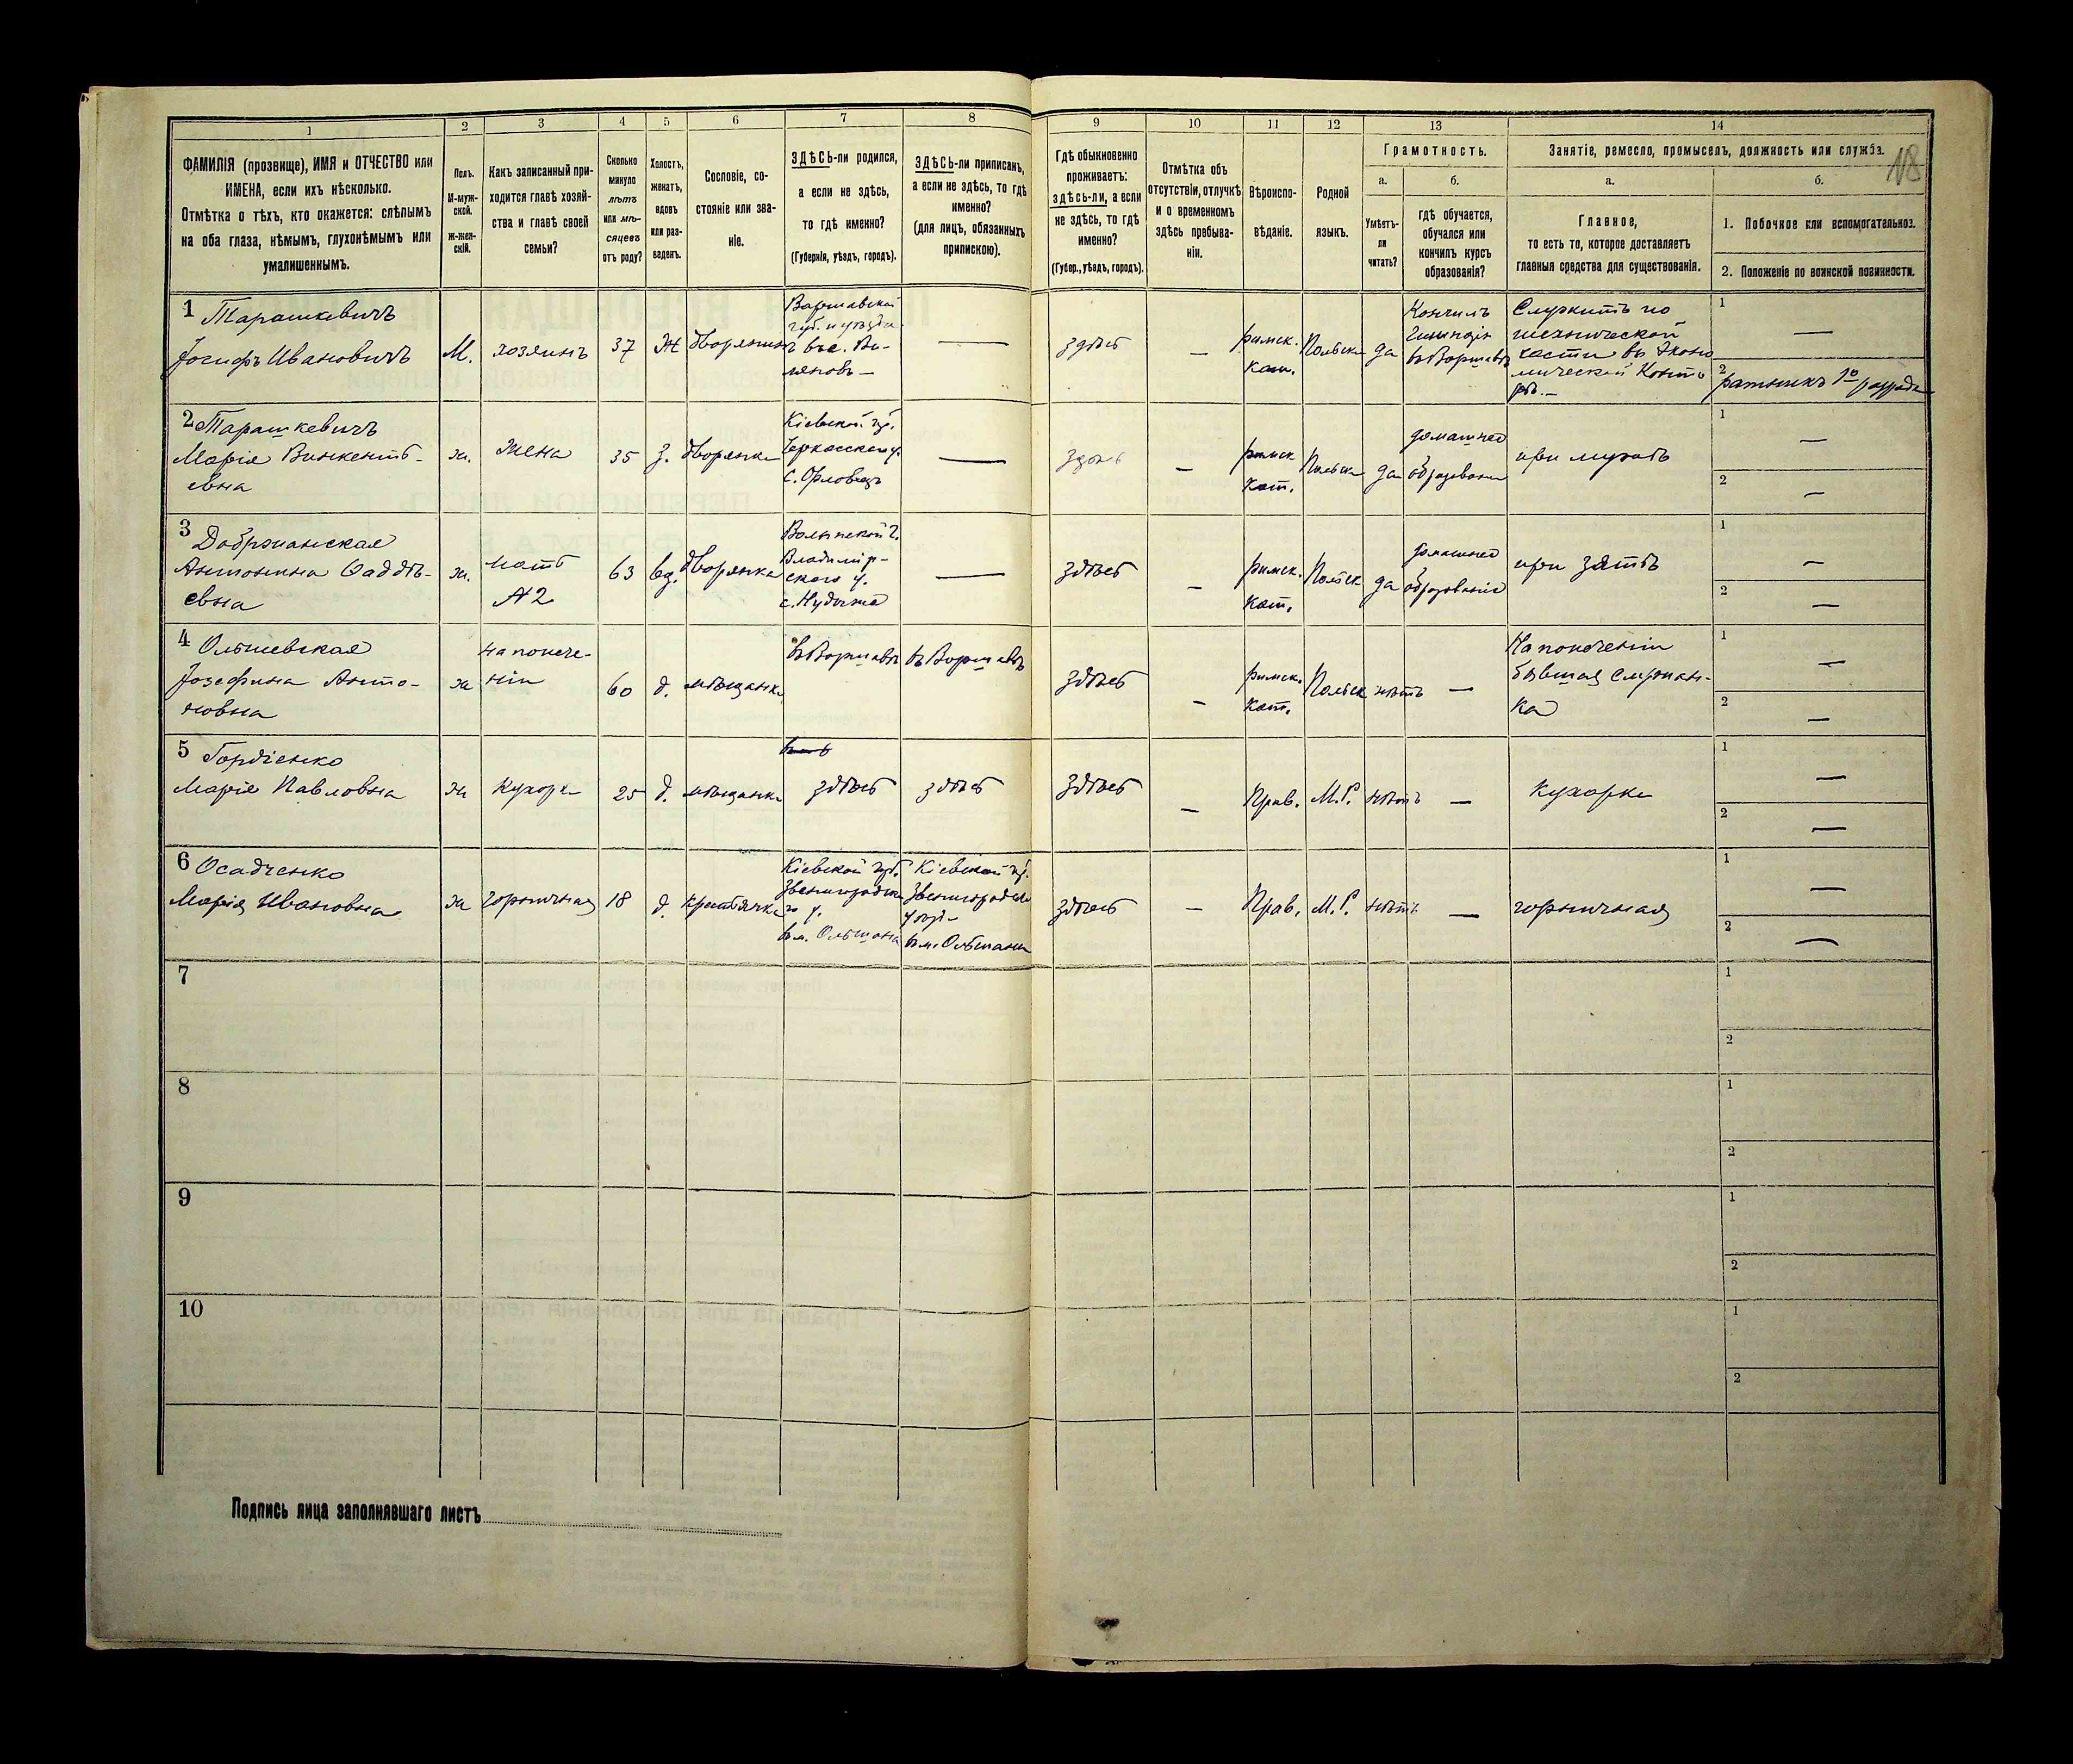 1
2
3
4
5
6
7
8
9
10
11
12
13
14
18
ФАМИЛІЯ (прозвище), ИМЯ и ОТЧЕСТВО или
ИМЕНА, если ихъ нѣсколько.
Отмѣтка о тѣхъ, кто окажется: слѣпымъ
на оба глаза, нѣмымъ, глухонѣмымъ или
умалишеннымъ.
Полъ.
М-муж-
ской.
Ж-жен-
скій.
Какъ записанный при-
ходится главѣ хозяй-
ства и главѣ своей
семьи?
Сколько
минуло
лѣтъ
или мѣ-
сяцевъ
отъ роду?
Холостъ,
женатъ,
вдовъ
или раз-
веденъ.
Сословіе, со-
стояніе или зва-
ніе.
ЗДѢСЬ-ли родился,
а если не здѣсь,
то гдѣ именно?
(Губернія, уѣздъ, городъ).
ЗДѢСЬ-ли приписанъ,
а если не здѣсь, то гдѣ
именно?
(для лицъ, обязанныхъ
припискою).
Гдѣ обыкновенно
проживаетъ:
здѣсь-ли, а если
не здѣсь, то гдѣ
именно?
(Губер., уѣздъ, городъ).
Отмѣтка объ
отсутствіи, отлучкѣ
и о временномъ
здѣсь пребыва-
ніи.
Вѣроиспо-
вѣданіе.
Родной
языкъ.
Грамотность.
а.
Умѣетъ-
ли
читать?
б.
гдѣ обучается,
обучался или
кончилъ курсъ
образованія?
Занятіе, ремесло, промыселъ, должность или служба.
а.
Главное,
то есть то, которое доставляетъ
главныя средства для существованія.
б.
1. Побочное или вспомогательное.
2. Положеніе по воинской повинности.
1 Тарашкевичъ
Іосифъ Ивановичъ
М.
хозяинъ
37
Ж
дворянинъ
Варшавской
губ. и уѣзда
въ с. Ви-
ляновъ —
—
здѣсь
—
римск.
кат.
Польск
да
Кончилъ
гимназію
въ Варшавѣ
Служитъ по
технической
части въ Эконо
мической Конто
рѣ. —
1
—
2
ратникъ 1о разряда
2 Тарашкевичъ
Марія Викентъ-
евна
ж.
Жена
35
з.
дворянка
Кіевской губ.
Черкасскаго у.
с. Орловецъ
—
здѣсь
—
римск
кат.
Польск
да
домашнее
образован
при мужѣ
1
—
2
—
3 Добржанская
Антонина Фаддѣ-
евна
ж.
мать
№2
63
вд.
дворянка
Волынской г.
Владимір-
скаго у.
с. Нудыже
—
здѣсь
—
римск.
кат.
Польск
да
домашнее
образованіе
при зятѣ
1
—
2
—
4 Ольшевская
Іозефина Анто-
новна
ж
на попече-
ніи
60
д.
мѣщанка
въ Варшавѣ
въ Варшавѣ
здѣсь
—
римск.
кат.
Польск
нѣтъ
—
На попеченіи
бывшая служан-
ка
1
—
2
—
5 Гордіенко
Марія Павловна
ж
Кухарка
25
д.
мѣщанка
здѣсь
здѣсь
здѣсь
—
Прав.
М.Р.
нѣтъ
—
кухарка
1
—
2
—
6 Осадченко
Марія Ивановна
ж
горничная
18
д.
крестьянка
Кіевской губ.
Звенигородска
го у.
въ м. Ольшана
Кіевской губ.
Звенигородск
уѣзд-
въ м. Ольшана
здѣсь
—
Прав.
М.Р.
нѣтъ
—
горничная
1
—
2
—
7
1
2
8
1
2
9
1
2
10
1
2
Подпись лица заполнявшаго листъ